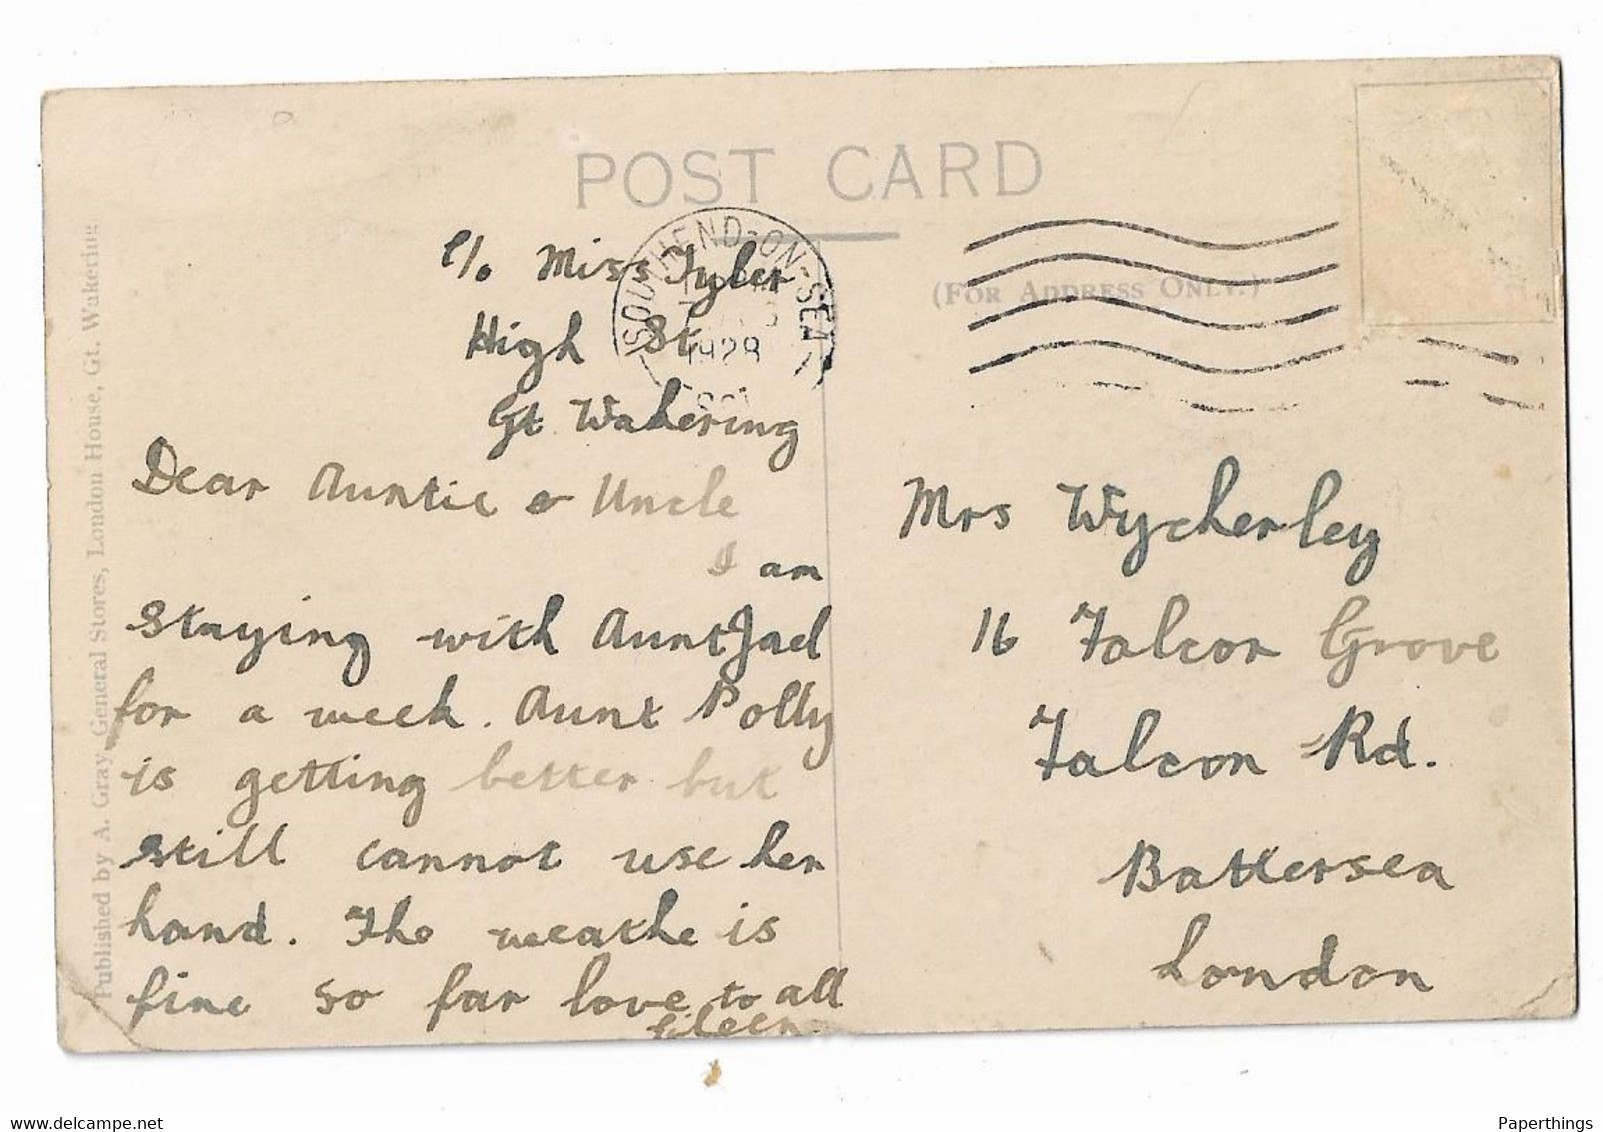 POST CARD
(FOR ADDRESS ONLY.)
SOUTHEND-ON-SEA
1928
c/o Miss Tyler
High St.
Gt Wakering
Dear Auntie & Uncle
I am
staying with Aunt Jael
for a week. Aunt Polly
is getting better but
still cannot use her
hand. The weathe is
fine so far love to all
Eileen.
Mrs Wycherley
16 Falcon Grove
Falcon Rd.
Battersea
London
Published by A. Gray, General Stores, London House, Gt. Wakering
www.delcampe.net
Paperthings